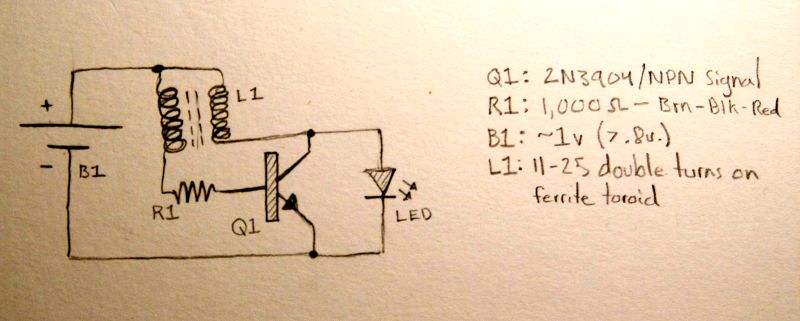 +
L1
-
B1
R1
Q1
LED
Q1: 2N3904/NPN Signal
R1: 1,000Ω - Brn-Blk-Red
B1: ~1v (>.8v.)
L1: 11-25 double turns on
ferrite toroid